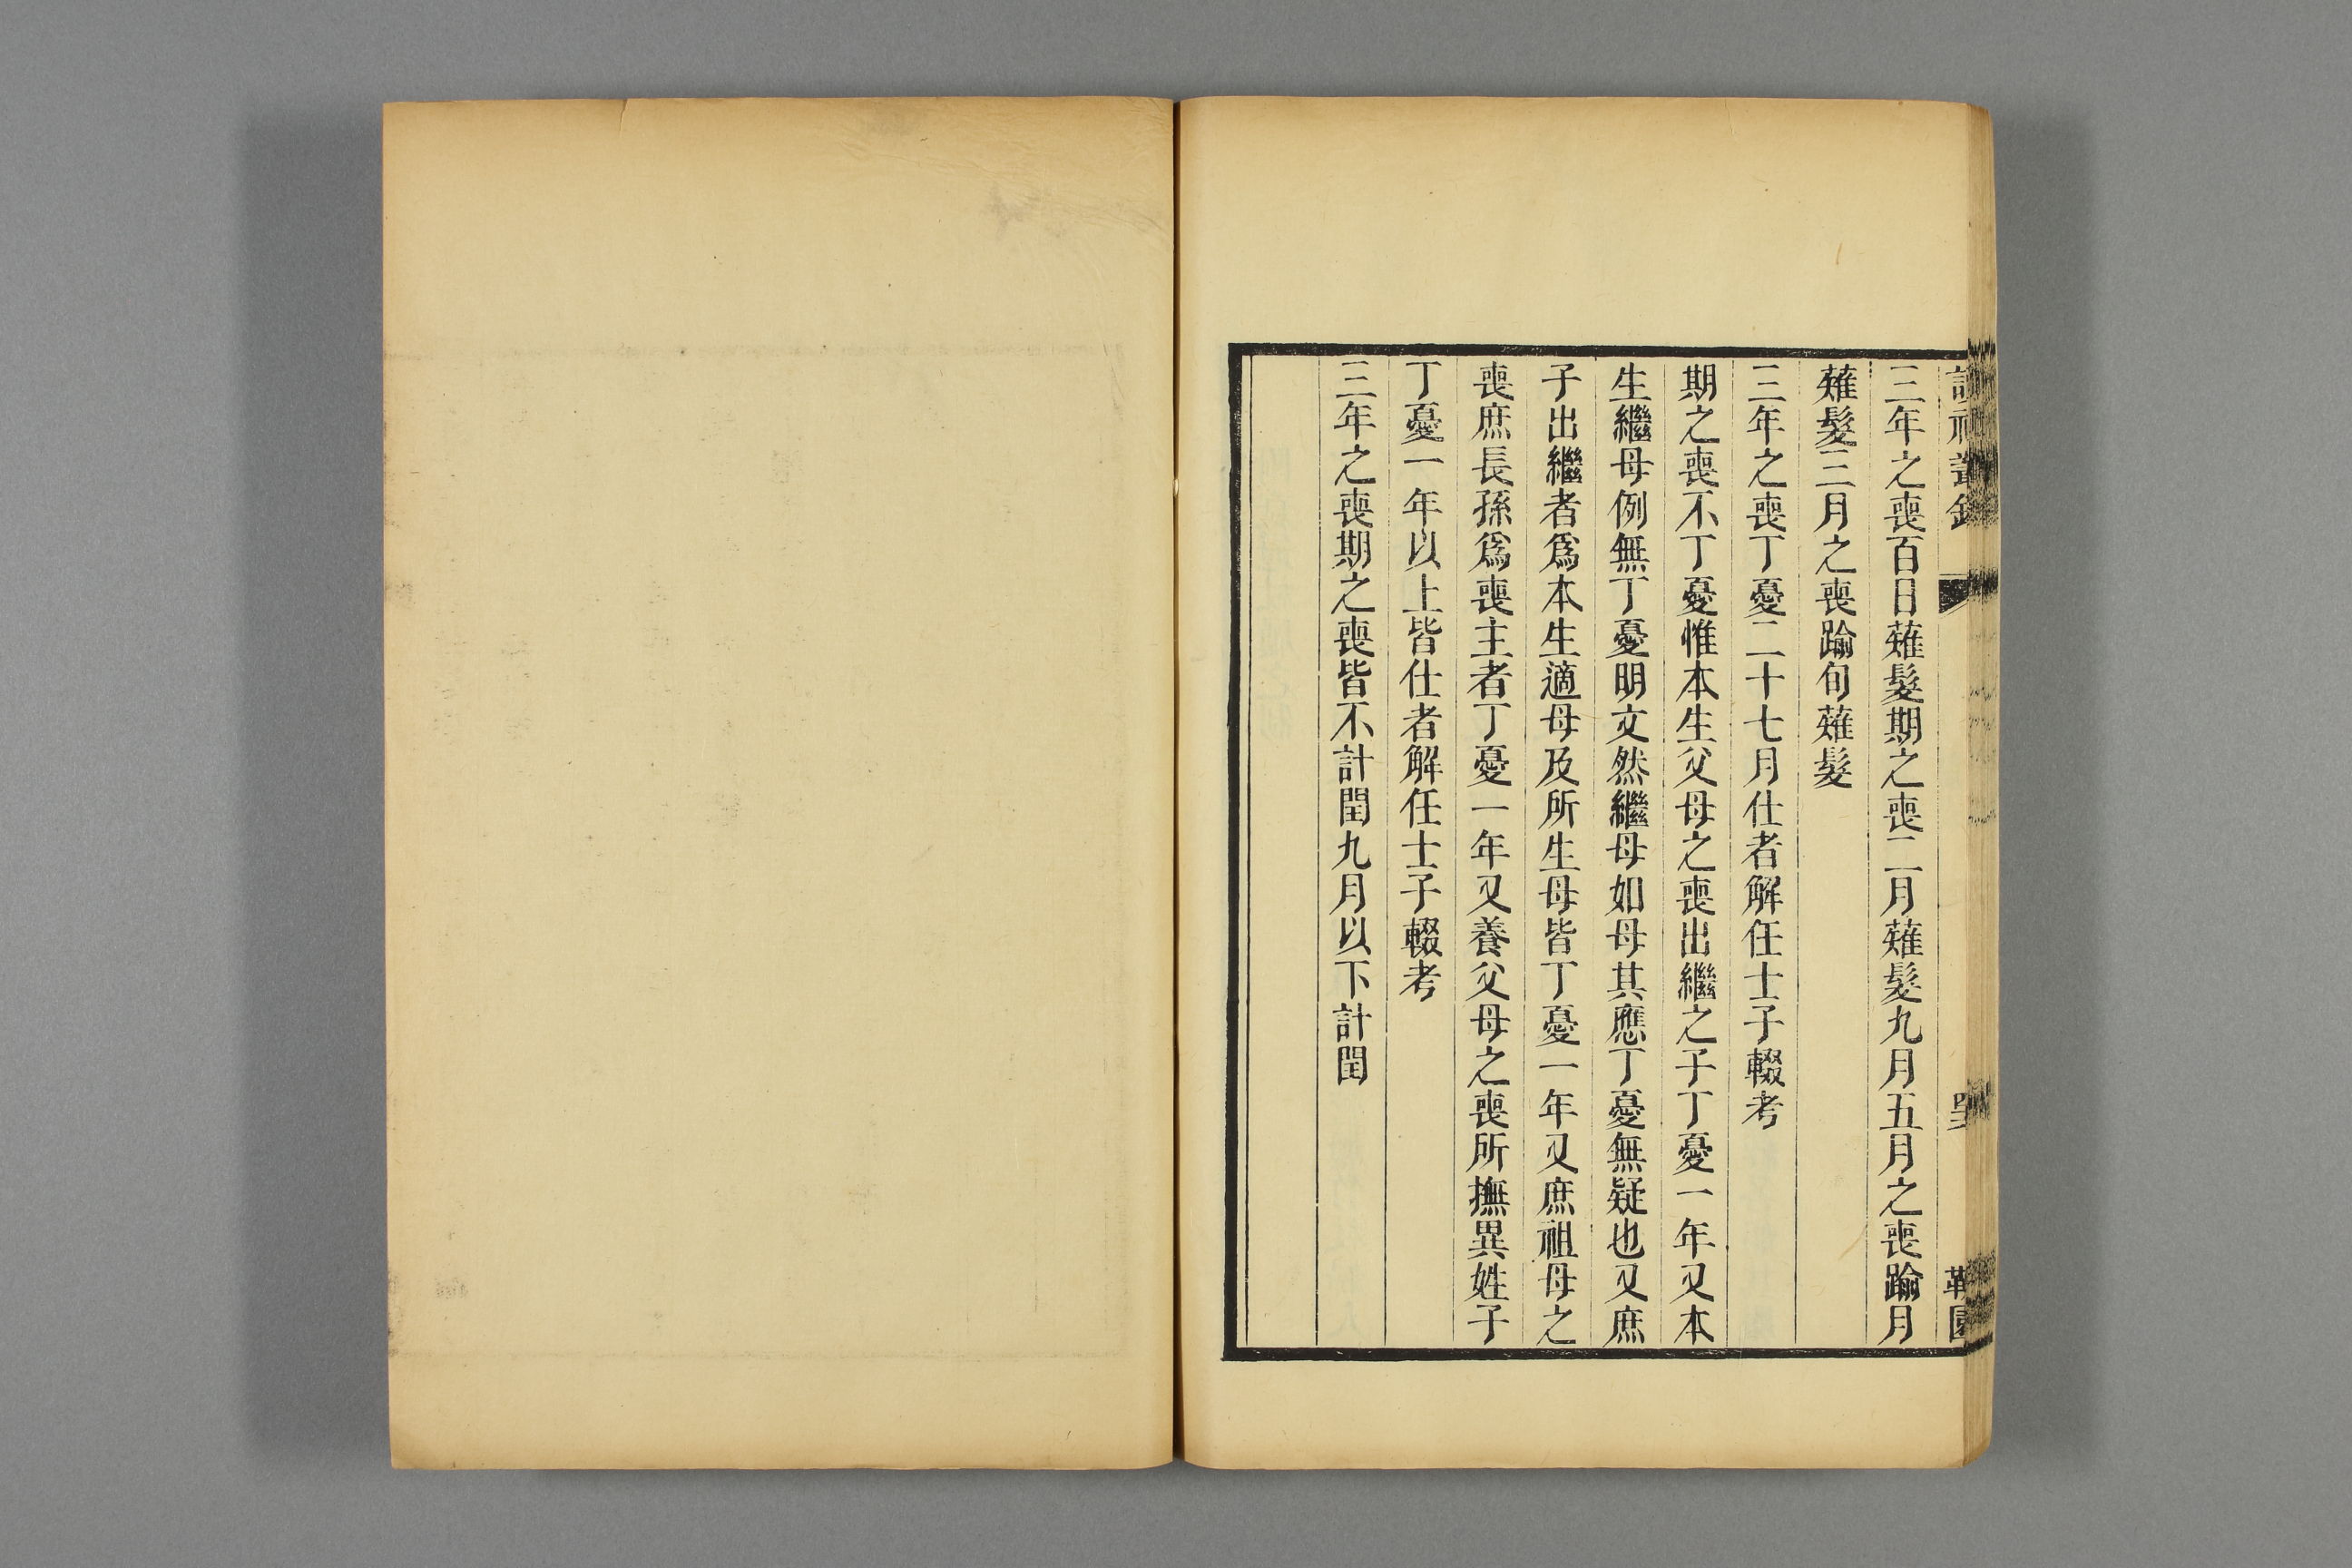 三年之喪百日薙髮期之喪二月薙髮九月五月之喪踰月
薙髮三月之喪踰旬薙髮
三年之喪丁憂二十七月仕者解任士子輟考
期之喪不丁憂惟本生父母之喪出繼之子丁憂一年又本
生繼母例無丁憂明文然繼母如母其應丁憂無疑也又庶
子出繼者爲本生適母及所生母皆丁憂一年又庶祖母之
喪庶長孫爲喪主者丁憂一年又養父母之喪所撫異姓子
丁憂一年以上皆仕者解任士子輟考
三年之喪期之喪皆不計閏九月以下計閏